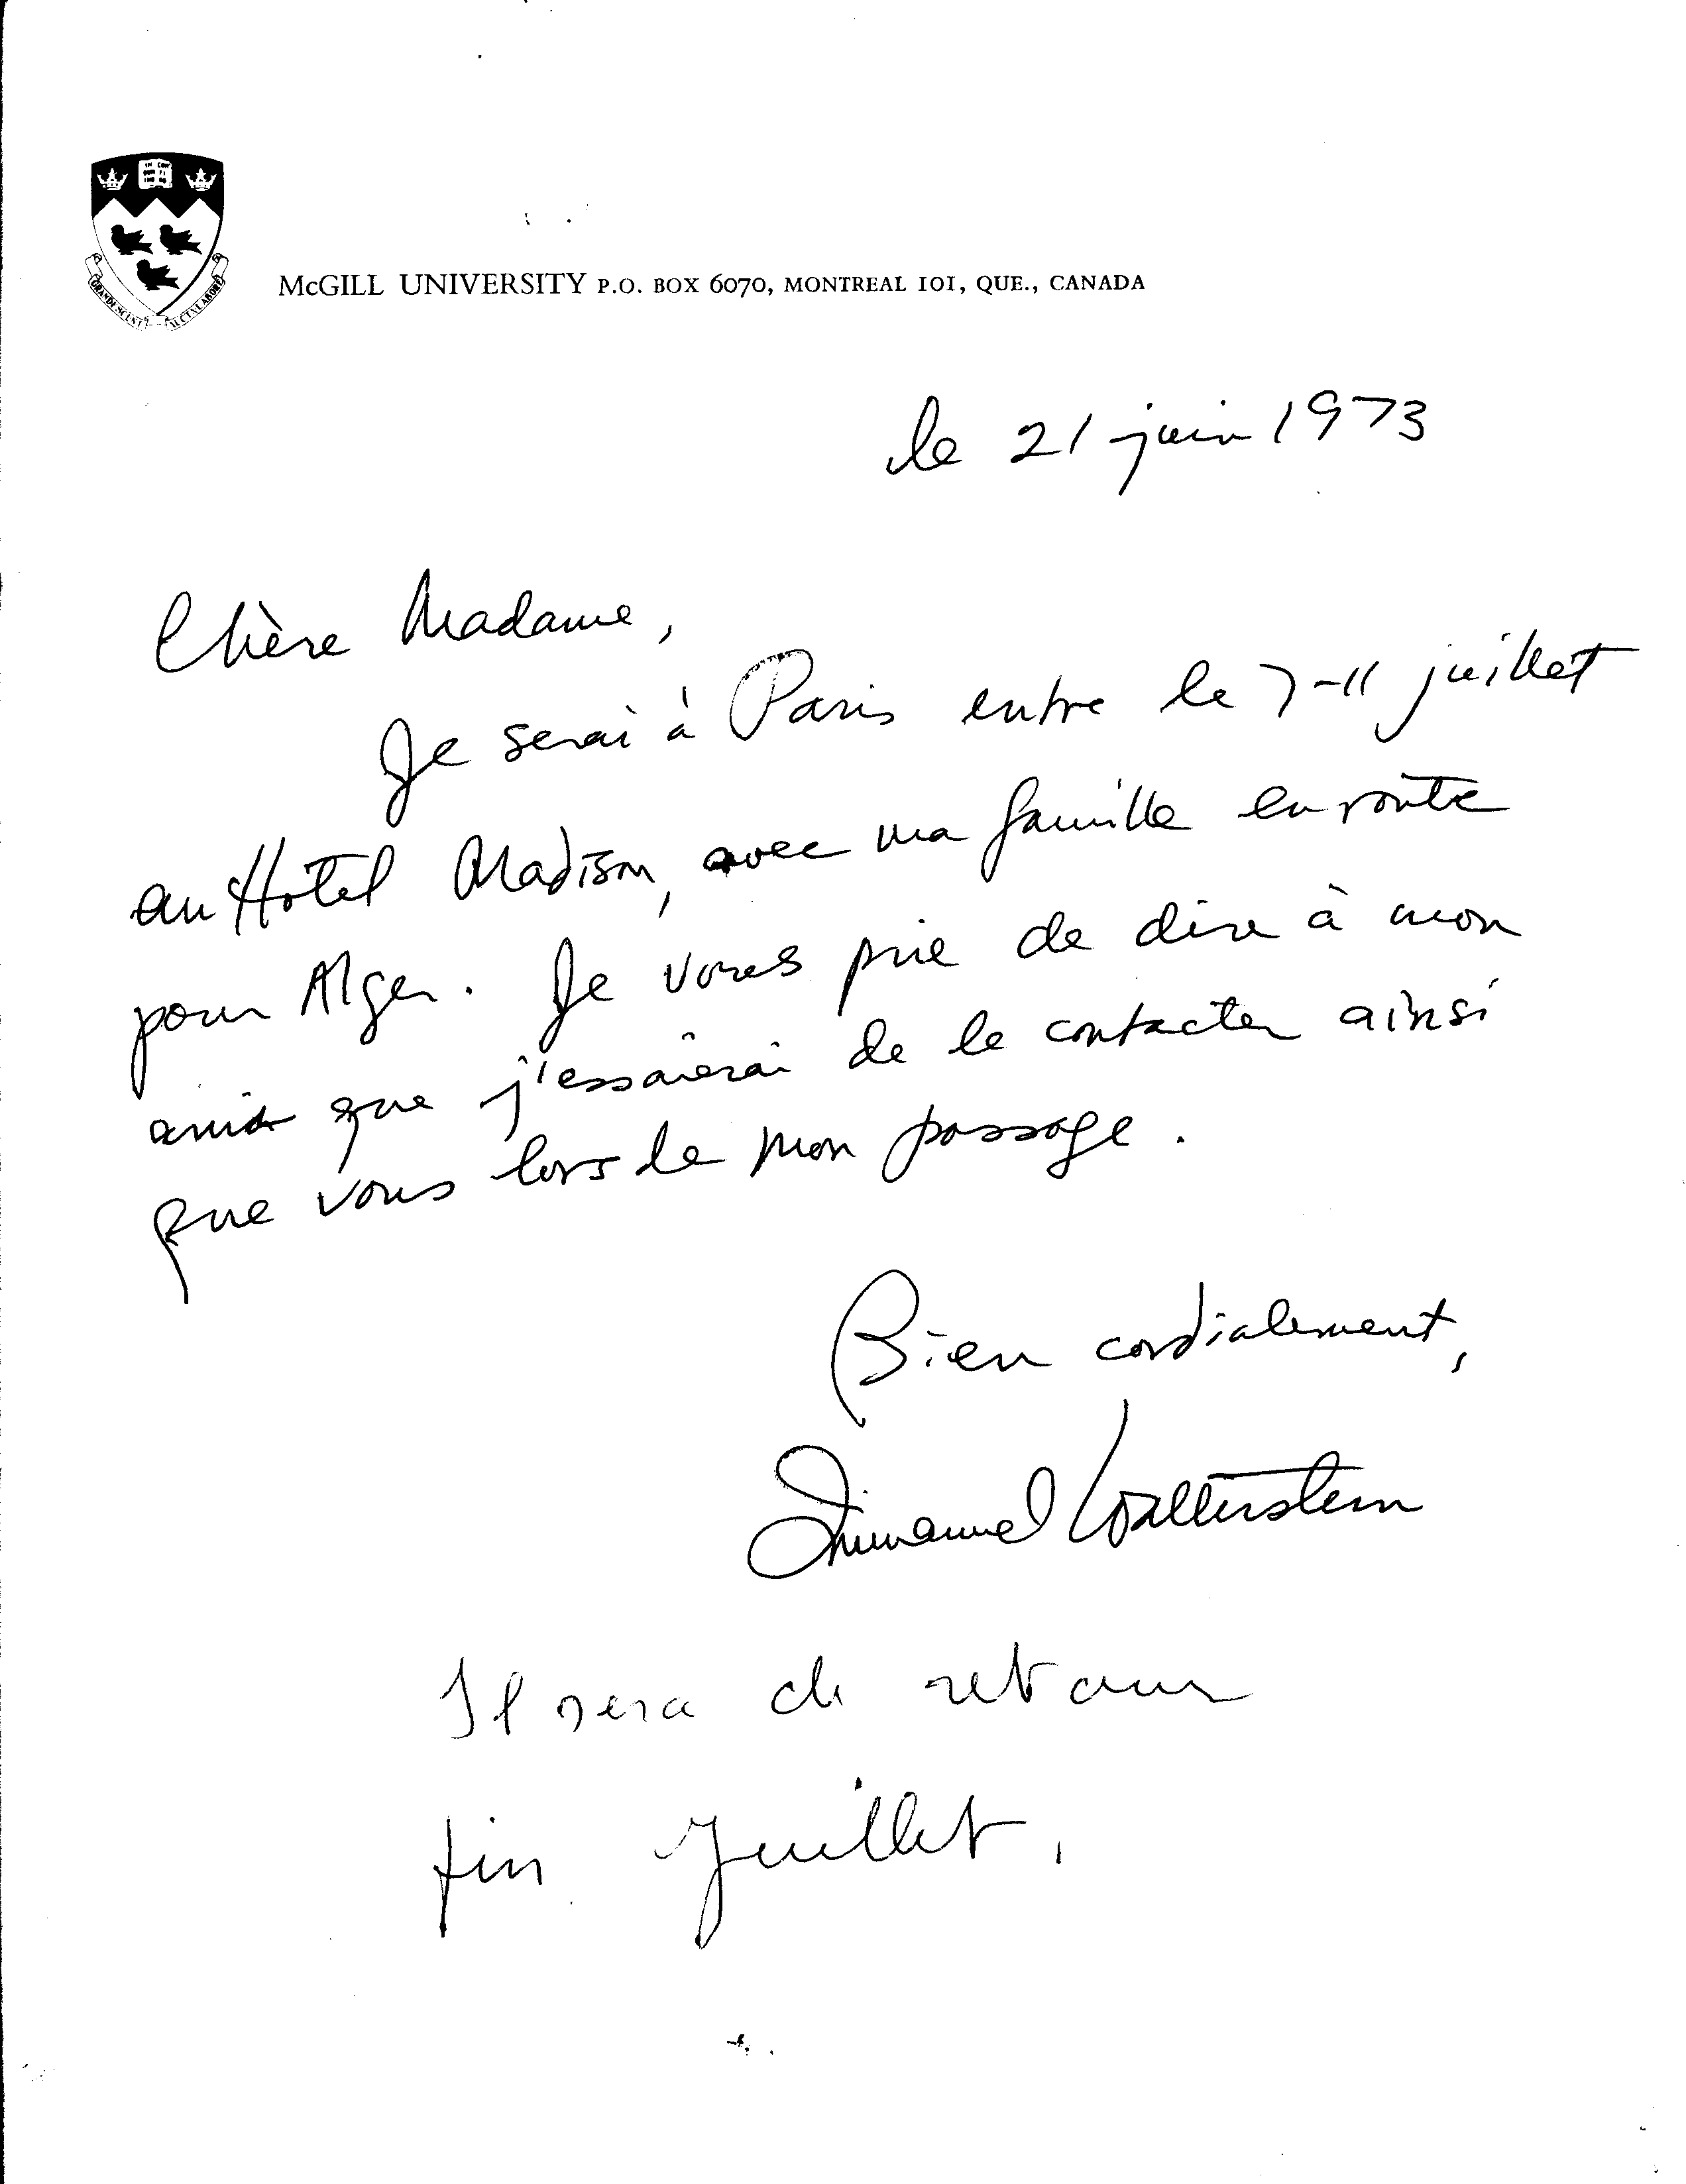 McGILL UNIVERSITY P.O. BOX 6070, MONTREAL 101, QUE., CANADA
le 21 juin 1973
Chère Madame,
Je serai à Paris entre le 7-11 juillet
au Hotel Madison, avec ma famille en route
pour Alger. Je vous prie de dire à mon
ami que j'essaierai de le contacter ainsi
que vous lors de mon passage.
Bien cordialement,
Immanuel Wallerstein
Il sera de retour
fin Juillet.